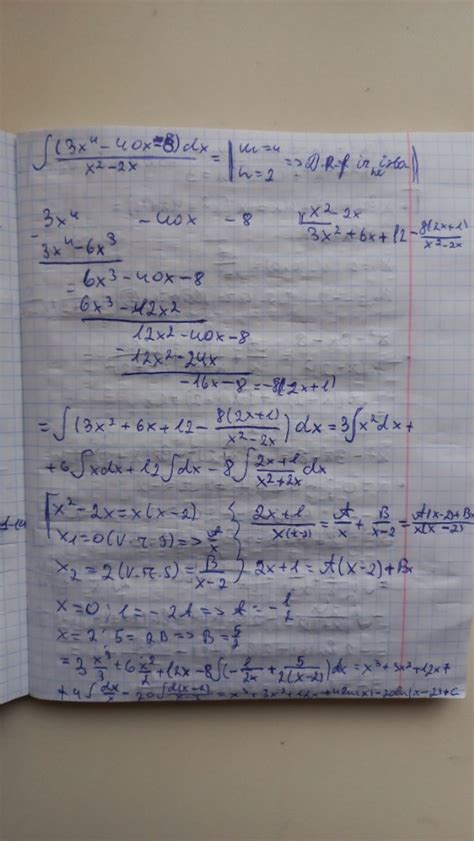 ∫ (3x⁴ - 40x - 8)dx / (x² - 2x) = | m = 4 n = 2 =>
3x⁴ - 40x - 8 | x² - 2x
3x⁴ - 6x³ | 3x² + 6x + 12 - 8(2x+1)/(x²-2x)
6x³ - 40x - 8
6x³ - 12x²
12x² - 40x - 8
12x² - 24x
-16x - 8 = -8(2x+1)
= ∫ (3x² + 6x + 12 - 8(2x+1)/(x²-2x)) dx = 3∫x²dx +
+ 6∫xdx + 12∫dx - 8∫ (2x+1)/(x²+2x) dx
x² - 2x = x(x-2) } (2x+1)/(x(x-2)) = A/x + B/(x-2) = (A(x-2)+Bx)/(x(x-2))
x₁ = 0 => A/x
x₂ = 2 = B/(x-2) } 2x+1 = A(x-2) + Bx
x = 0; 1 = -2A => A = -1/2
x = 2; 5 = 2B => B = 5/2
= 3 x³/3 + 6 x²/2 + 12x - 8∫(-1/2x + 5/2(x-2))dx = x³ + 3x² + 12x +
+ 4∫dx/x - 20∫d(x-2)/(x-2) = x³ + 3x² + 12x + 4ln|x| - 20ln|x-2| + C